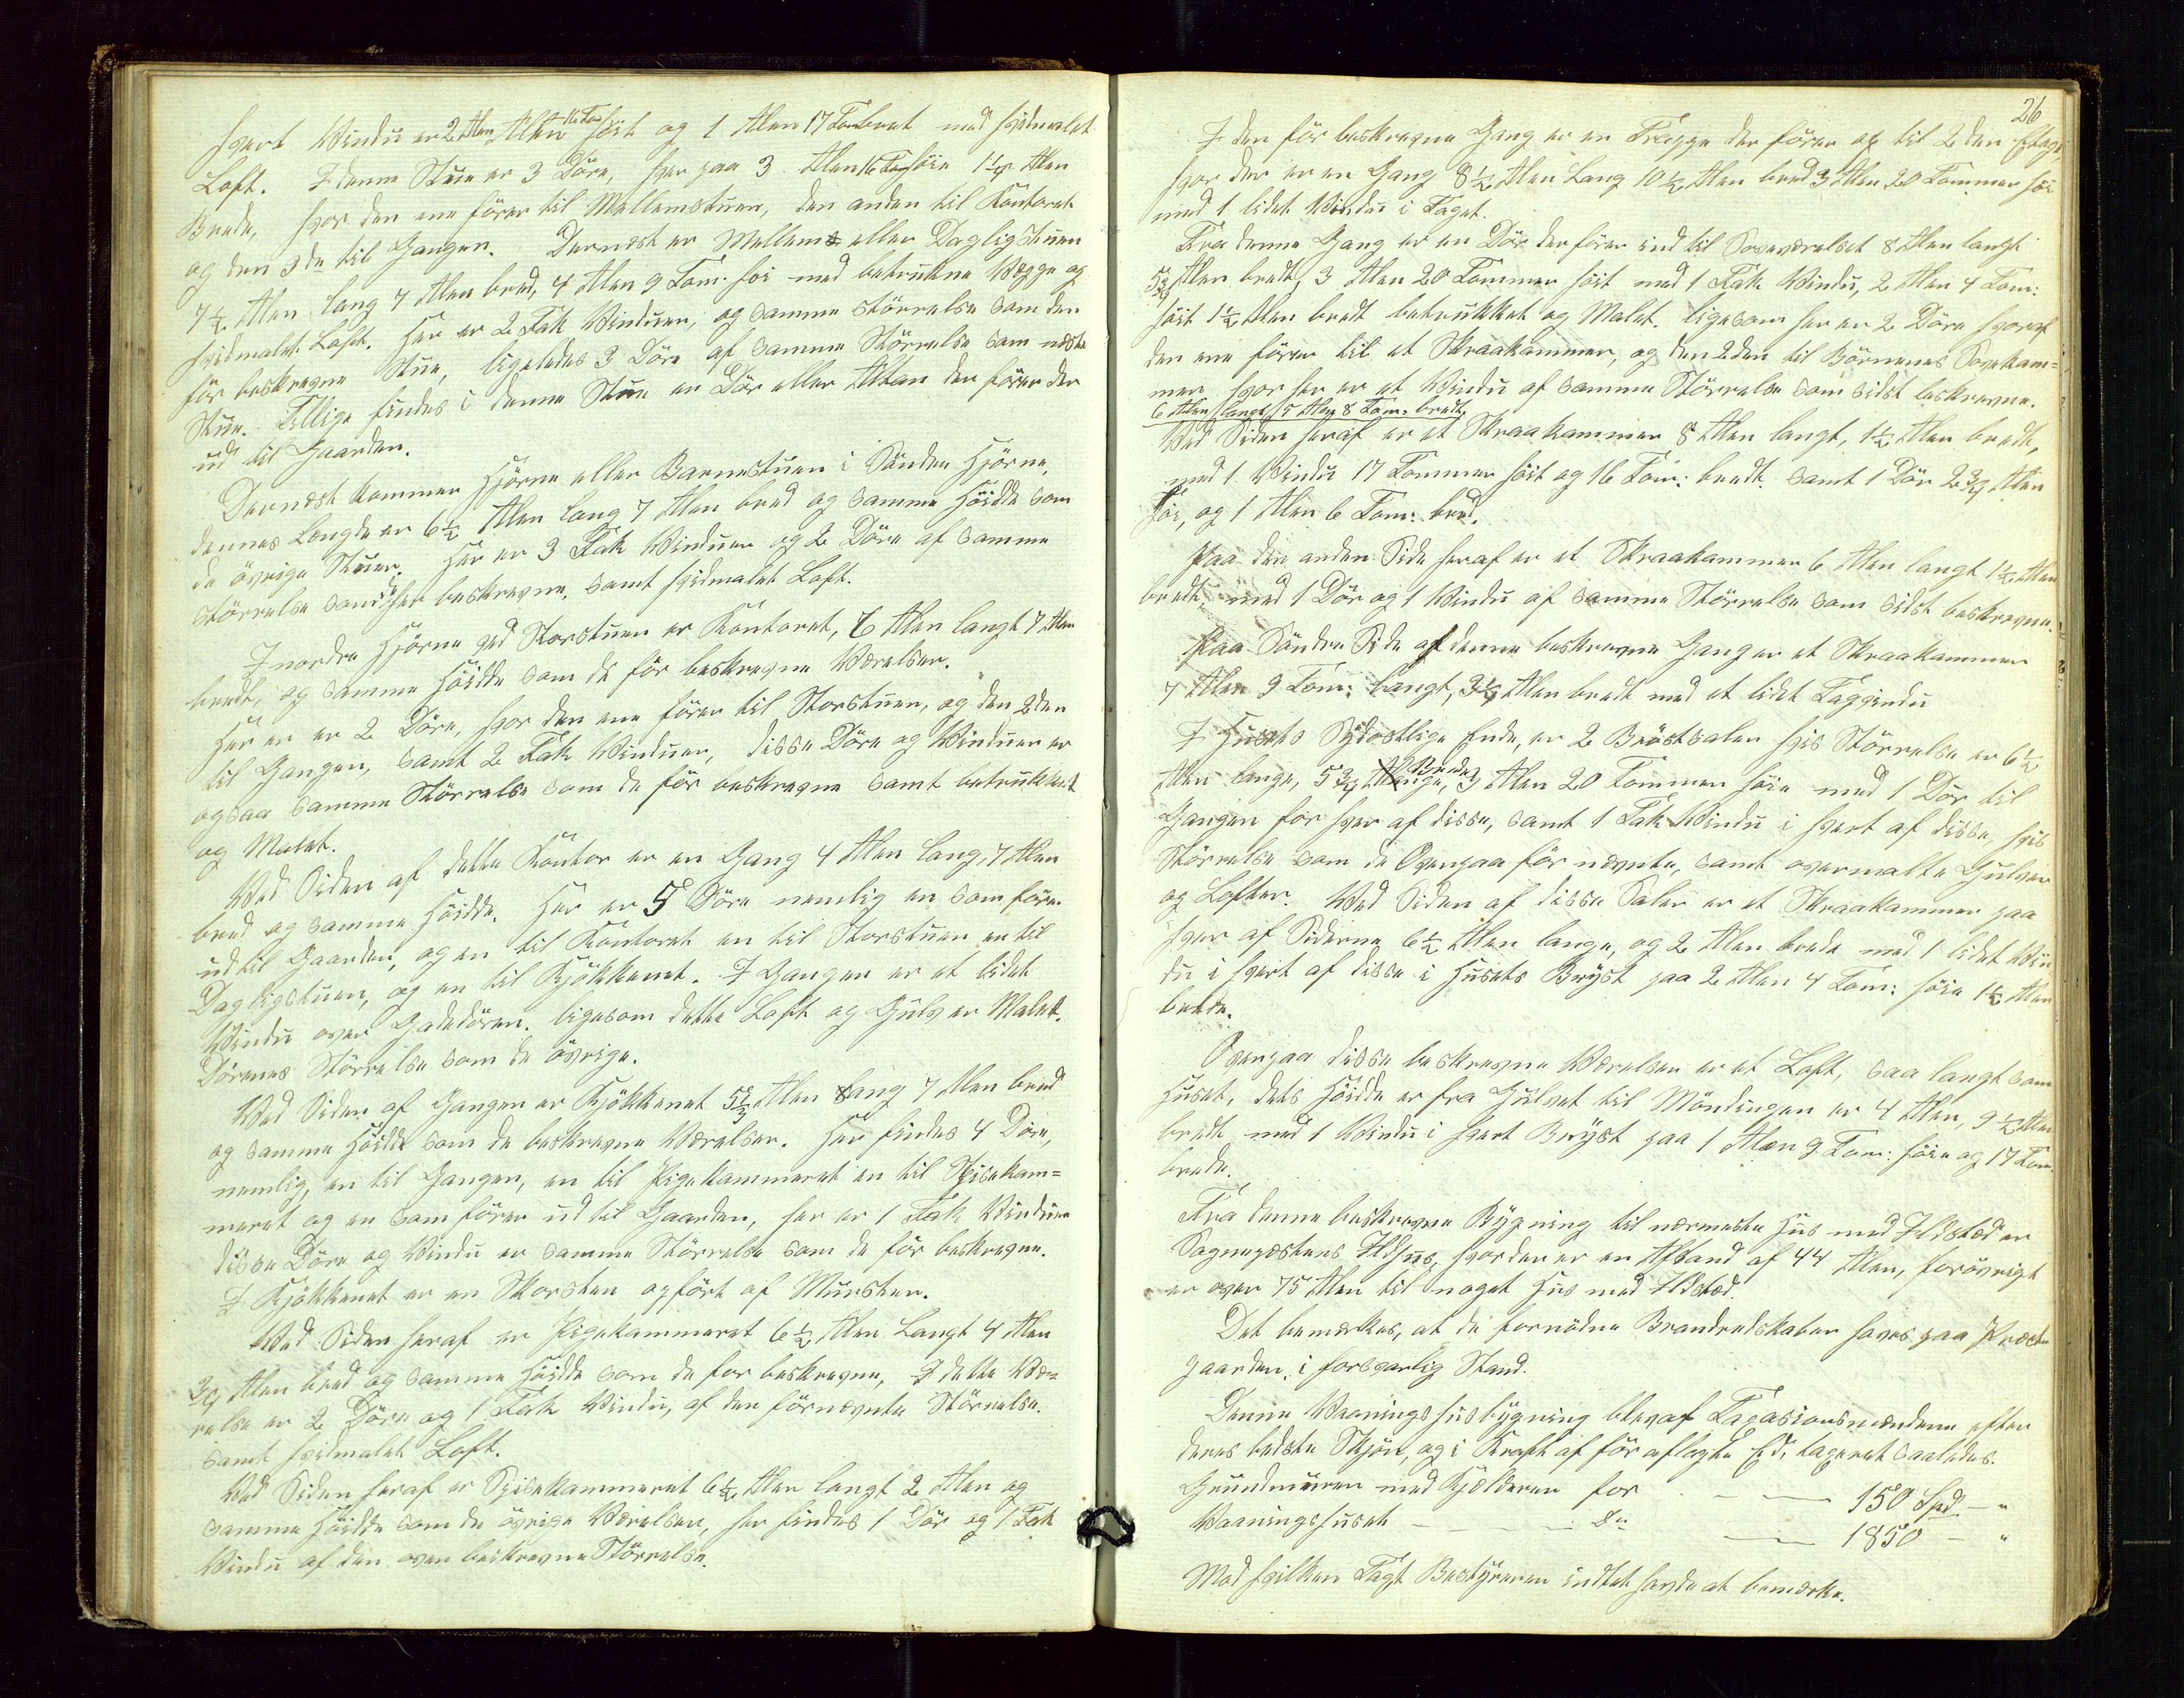 hvert Vindu er 2 Alen 16 Tom høit og 1 Alen 17 Tom bret med hvidmalet
Loft. I denne Stue er 3 Döre, hver paa 3 Alen 16 Tom høie 1 1/4 Alen
Brede, hvor den ene förer til Mellemstuen, den anden til Kontoret
og den 3die til Gangen. Dernæst er Mellem eller Dagligstuen
7 1/2 Alen lang 7 Alen bred, 4 Alen 9 Tom: høi med betrukne Vægge og
hvidmalet Loft. Her er 2 Fak Vinduer, og samme störrelse som den
för beskrevne Stue, ligeledes 3 Döre af samme Störrelse som næste
Stue. Tillige findes i denne Stue en Dör eller Altan der förer der
ud til Gaarden.
Dernæst kommer Hjörne eller Barnestuen i Söndre Hjörne,
dennes Længde er 6 1/2 Alen lang 7 Alen bred og samme Höidde som
de övrige Stuer. Her er 3 Fak Vinduer og 2 Döre af samme
störrelse som för beskrevne, samt hvidmalet Loft.
I nordre Hjörne ved Storstuen er Kontoret, 6 Alen langt 7 Alen
bredt, og samme Höidde som de för beskrevne Værelser.
Her er er 2 Döre, hvor den ene förer til Storstuen, og den 2den
til Gangen, samt 2 Fak Vinduer, disse Döre og Vinduer er
ogsaa samme Störrelse som de för beskrevne samt betrukket
og Malet.
Ved Siden af dette Kontor er en Gang 4 Alen lang, 7 Alen
bred og samme Höidde. Her er 5 Döre nemlig en som förer
ud til Gaarden, og en til Kontoret en til Storstuen en til
Dagligstuen, og en til Kjökkenet. I Gangen er et lidet
Vindu over Gadedören. ligesom dette Loft og Gulv er Malet.
Dörenes Störrelse som de övrige.
Ved Siden af Gangen er Kjökkenet 5 1/2 Alen lang 7 Alen bred
og samme Höidde som de beskrevne Værelser. Her findes 4 Döre,
nemlig, en til Gangen, en til Pigekammeret en til Spisekam=
meret og en som förer ud til Gaarden, her er 1 Fak Vinduer
disse Döre og Vindu er samme Störrelse som de för beskrevne.
I Kjökkenet er en Skorsten opfört af Mursten.
Ved Siden heraf er Pigekammeret 6 1/2 Alen Langt 4 Alen
3/4 Alen bred og samme Höidde som de for beskrevne, I dette Væ=
relse er 2 Döre og 1 Fak Vindu, af den förnævnte Störrelse.
samt hvidmalet Loft.
Ved Siden heraf er Spisekammeret 6 1/2 Alen langt 2 Alen og
samme Höidde som de övrige Værelser, her findes 1 Dör og 1 Fak
Vindu af den oven beskrevne Störrelse.
26
I den för beskrevne Gang er en Trappe der förer op til 2den Etage,
hvor der er en Gang 8 1/2 Alen Lang 10 1/2 Alen bred 3 Alen 20 Tommer høi
med 1 lidet Vindu i Taget.
Fra denne Gang er en Dör der förer ind til Soveværelset 8 Alen langt
5 3/4 Alen bredt, 3 Alen 20 Tommer höit med 1 Fak Vindu, 2 Alen 4 Tom:
höit 1 1/2 Alen bredt betrukket og Malet. ligesom her er 2 Döre hvoraf
den ene förer til et Skraakammer, og den 2den til Börnenes Sovekam=
mer hvor her er et Vindu af samme Störrelse som sidst beskrevne.
6 Alen langt 5 Alen 8 Tom: bredt,
Ved Siden heraf er et Skraakammer 8 Alen langt, 1 1/2 Alen bredt,
med 1 Vindu 17 Tommer höit og 16 Tom: bredt. samt 1 Dör 2 3/4 Alen
höi, og 1 Alen 6 Tom: bred.
Paa den anden Side heraf er et Skraakammer 6 Alen langt 1 1/2 Alen
bredt, med 1 Dör og 1 Vindu af samme Störrelse som sidst beskrevne.
Paa Söndre Side af denne beskrevne Gang er et Skraakammer
7 Alen 9 Tom: langt, 3 1/4 Alen bredt med et lidet Tagvindu
I Husets Sydostlige Ende, er 2 Bröstsaler hvis Störrelse er 6 1/2
Alen lange, 5 3/4 Brede, 3 Alen 20 Tommer höie med 1 Dör til
Gangen for hver af disse, samt 1 Fak Vindu i hvert af disse, hvis
Störrelse som de Ovenpaa för nævnte, samt overmalte Gulver
og Lofter. Ved Siden af disse Saler er et Skraakammer paa
hver af Siderne 6 1/2 Alen lange, og 2 Alen brede med 1 lidet Vin
du i hvert af disse i Husets Bryst paa 2 Alen 4 Tom: höie 1 1/2 Alen
brede.
Ovenpaa disse beskrevne Værelser er et Loft, saa langt som
Huset, dets Höidde er fra Gulvet til Möndingen er 4 Alen, 9 1/2 Alen
bredt med 1 Vindu i hvert Bryst paa 1 Alen 9 Tom: höie og 17 Tom
brede.
Fra denne beskrevne Bygning til nærmeste Hus med Ildsted er
Sognepræstens Ildhus, hvor den er en Afstand af 44 Alen, forövrigt
er over 75 Alen til noget Hus med Ildsted.
Det bemærkes, at de fornödne Brandredskaber haves paa Præste
gaarden, i forsvarlig Stand.
Denne Vaaningshusbygning blev af Taxasionsmændene efter
deres bedste Skjön, og i Kraft af för aflagte Ed, taxeret saaledes.
Grundmuren med Kjælderen for — — 150 Spd — "
Vaaningshuset — — do — 1850 — "
Mod hvilken Taxt Bestyreren indtet havde at bemærke.